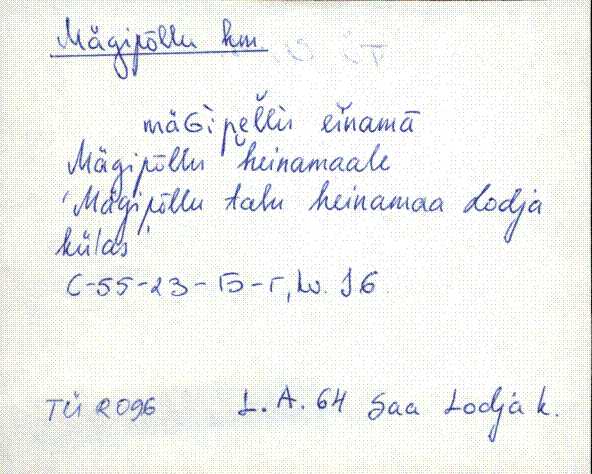 Mägipõllu hm.
mäGipĕllù eĭnamā
Mägipõllu heinamaale
'Mägipõllu talu heinamaa Lodja
külas'
C-55-23-Б-Г, lv. 16.
TÜ R096 L. A. 64 Saa Lodja k.